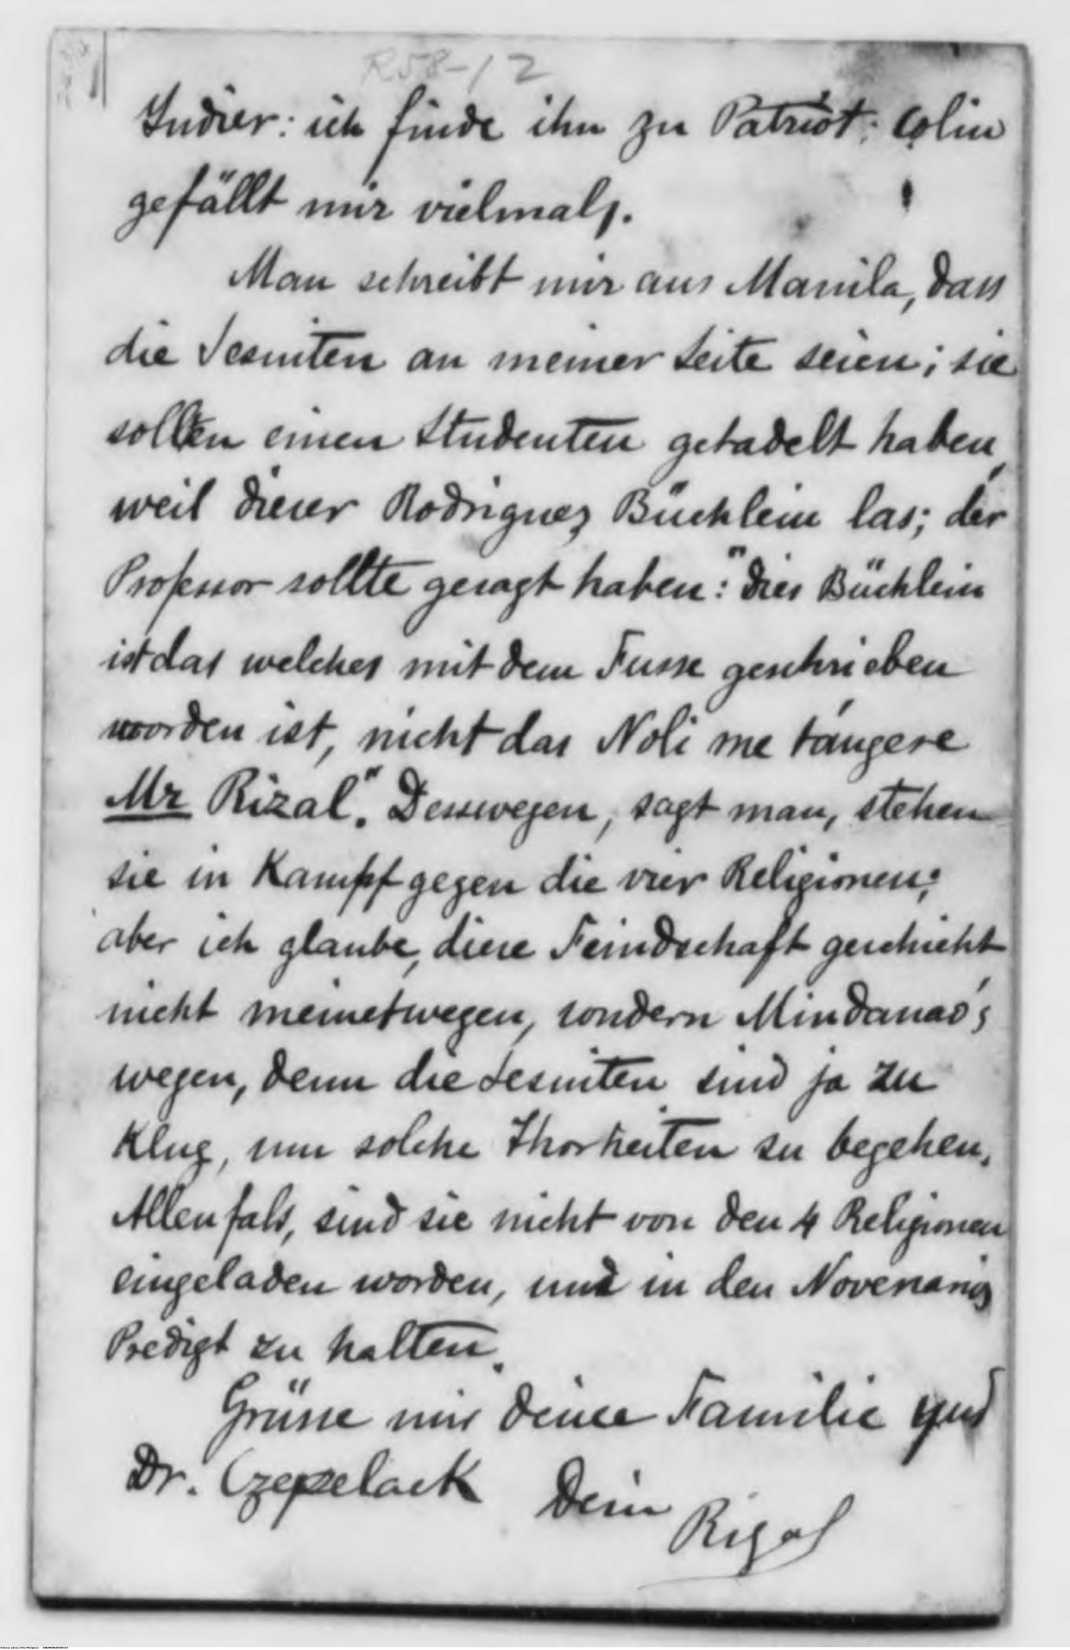 R58-12
Indier: ich finde ihn zu Patriot; Colin
gefällt mir vielmals.
Man schreibt mir aus Manila, dass
die Jesuiten an meiner Seite seien; sie
sollen einen Studenten getadelt haben,
weil dieser Rodriguez Büchlein las; der
Professor sollte gesagt haben: "dies Büchlein
ist das welches mit dem Fusse geschrieben
worden ist, nicht das Noli me tángere
Mr Rizal". Desswegen, sagt man, stehen
sie in Kampf gegen die vier Religionen;
aber ich glaube, diese Feindschaft geschieht
nicht meinetwegen, sondern Mindanao's
wegen, denn die Jesuiten sind ja zu
Klug, um solche Thorheiten zu begehen.
Allenfals, sind sie nicht von den 4 Religionen
eingeladen worden, um in den Novenarios
Predigt zu halten.
Grüsse mir deine Familie und
Dr. Czepelack Dein
Rizal